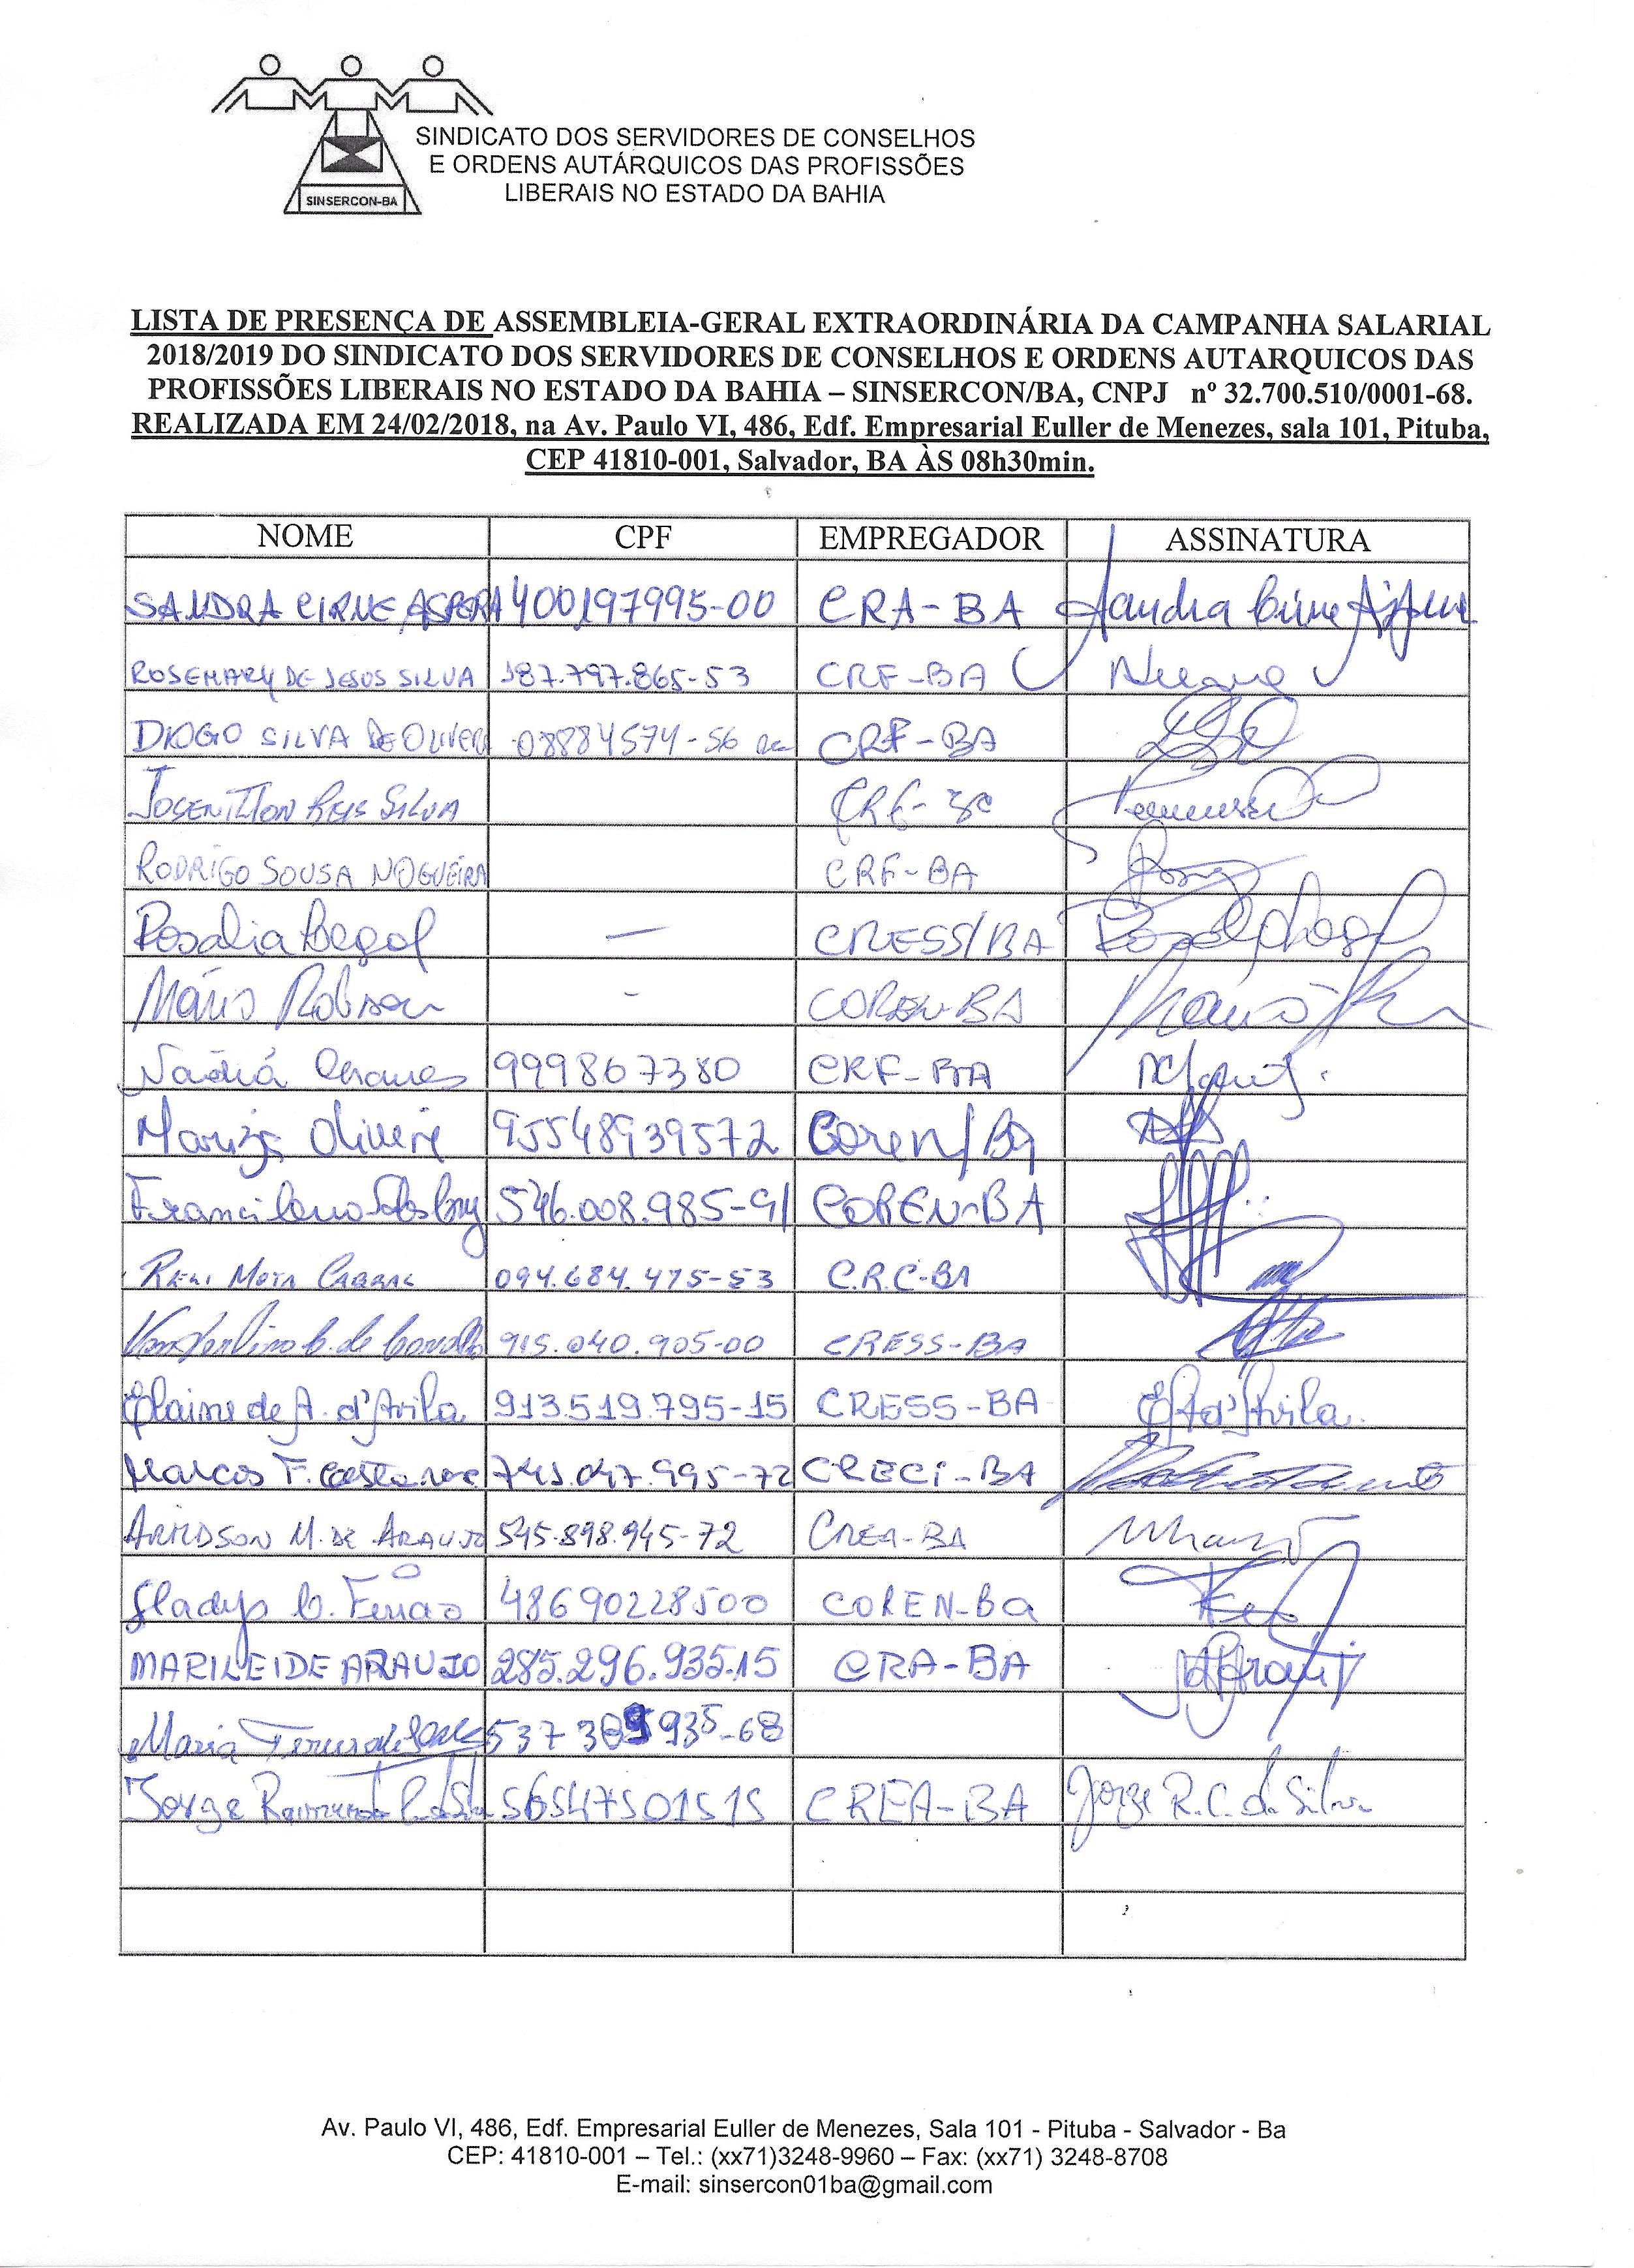 SINDICATO DOS SERVIDORES DE CONSELHOS
E ORDENS AUTÁRQUICOS DAS PROFISSÕES
LIBERAIS NO ESTADO DA BAHIA
SINSERCON-BA
LISTA DE PRESENÇA DE ASSEMBLEIA-GERAL EXTRAORDINÁRIA DA CAMPANHA SALARIAL
2018/2019 DO SINDICATO DOS SERVIDORES DE CONSELHOS E ORDENS AUTARQUICOS DAS
PROFISSÕES LIBERAIS NO ESTADO DA BAHIA – SINSERCON/BA, CNPJ nº 32.700.510/0001-68.
REALIZADA EM 24/02/2018, na Av. Paulo VI, 486, Edf. Empresarial Euller de Menezes, sala 101, Pituba,
CEP 41810-001, Salvador, BA ÀS 08h30min.
NOME CPF EMPREGADOR ASSINATURA
SANDRA CIRNE ASPERA 400197995-00 CRA-BA Sandra Cirne Aspera
ROSEMARY DE JESUS SILVA 187.797.865-53 CRF-BA
DIOGO SILVA DE OLIVEIR 08884574-56 CRF-BA
JOSENILTON REIS SILVA
RODRIGO SOUSA NOGUEIRA CRF-BA
Rosalia — CRESS/BA
Mário Robson - COREN-BA
Nádia 999867380 CRF-BA
Mariza Oliveira 95548939572 Coren/Ba
546.008.985-91 COREN-BA
094.684.475-53 C.R.C-BA
915.040.905-00 CRESS-BA
Elaine de A. d'Avila 913.519.795-15 CRESS-BA
Marcos F. Costa 741.047.995-72 CRECI-BA
M. DE ARAUJO 545.898.945-72 CREA-BA
Gladys C. 48690228500 COREN-Ba
MARILEIDE ARAUJO 285.296.935.15 CRA-BA
Maria
Jorge Raimundo 56547501515 CREA-BA Jorge R. C. da Silva
Av. Paulo VI, 486, Edf. Empresarial Euller de Menezes, Sala 101 - Pituba - Salvador - Ba
CEP: 41810-001 – Tel.: (xx71)3248-9960 – Fax: (xx71) 3248-8708
E-mail: sinsercon01ba@gmail.com